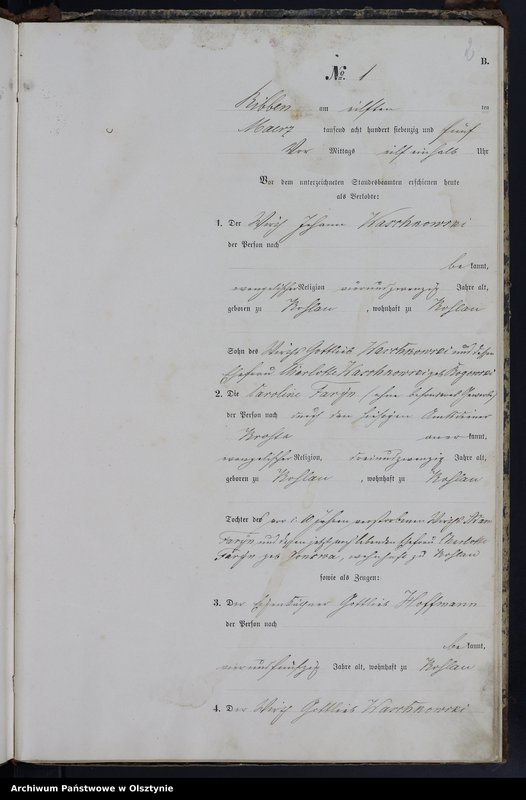 2
B.
No. 1
Ribben am eilften ten
Maerz tausend acht hundert siebenzig und fünf
Vor Mittags eilf einhalb Uhr
Vor dem unterzeichneten Standesbeamten erschienen heute
als Verlobte:
1. Der Wirth Johann Waschnowski
der Person nach
be kannt,
evangelischer Religion vierundzwanzig Jahre alt,
geboren zu Koslau, wohnhaft zu Koslau
Sohn des Wirths Gottlieb Waschnowski und dessen
Ehefrau Charlotte Waschnowski geb.
2. Die Caroline Faryn ohne besonderes Gewerbe
der Person nach durch den hiesigen Amtsdiener
Krohla aner kannt,
evangelischer Religion, dreiundzwanzig Jahre alt,
geboren zu Koslau, wohnhaft zu Koslau
Tochter des vor Jahren verstorbenen Wirths
Faryn und dessen jetzt noch lebenden Ehefrau Charlotte
Faryn geb. wohnhaft zu Koslau
sowie als Zeugen:
3. Der Eigenkäthner Gottlieb Hoffmann
der Person nach
be kannt,
Jahre alt, wohnhaft zu Koslau
4. Der Wirth Gottlieb Waschnowski
Archiwum Państwowe w Olsztynie